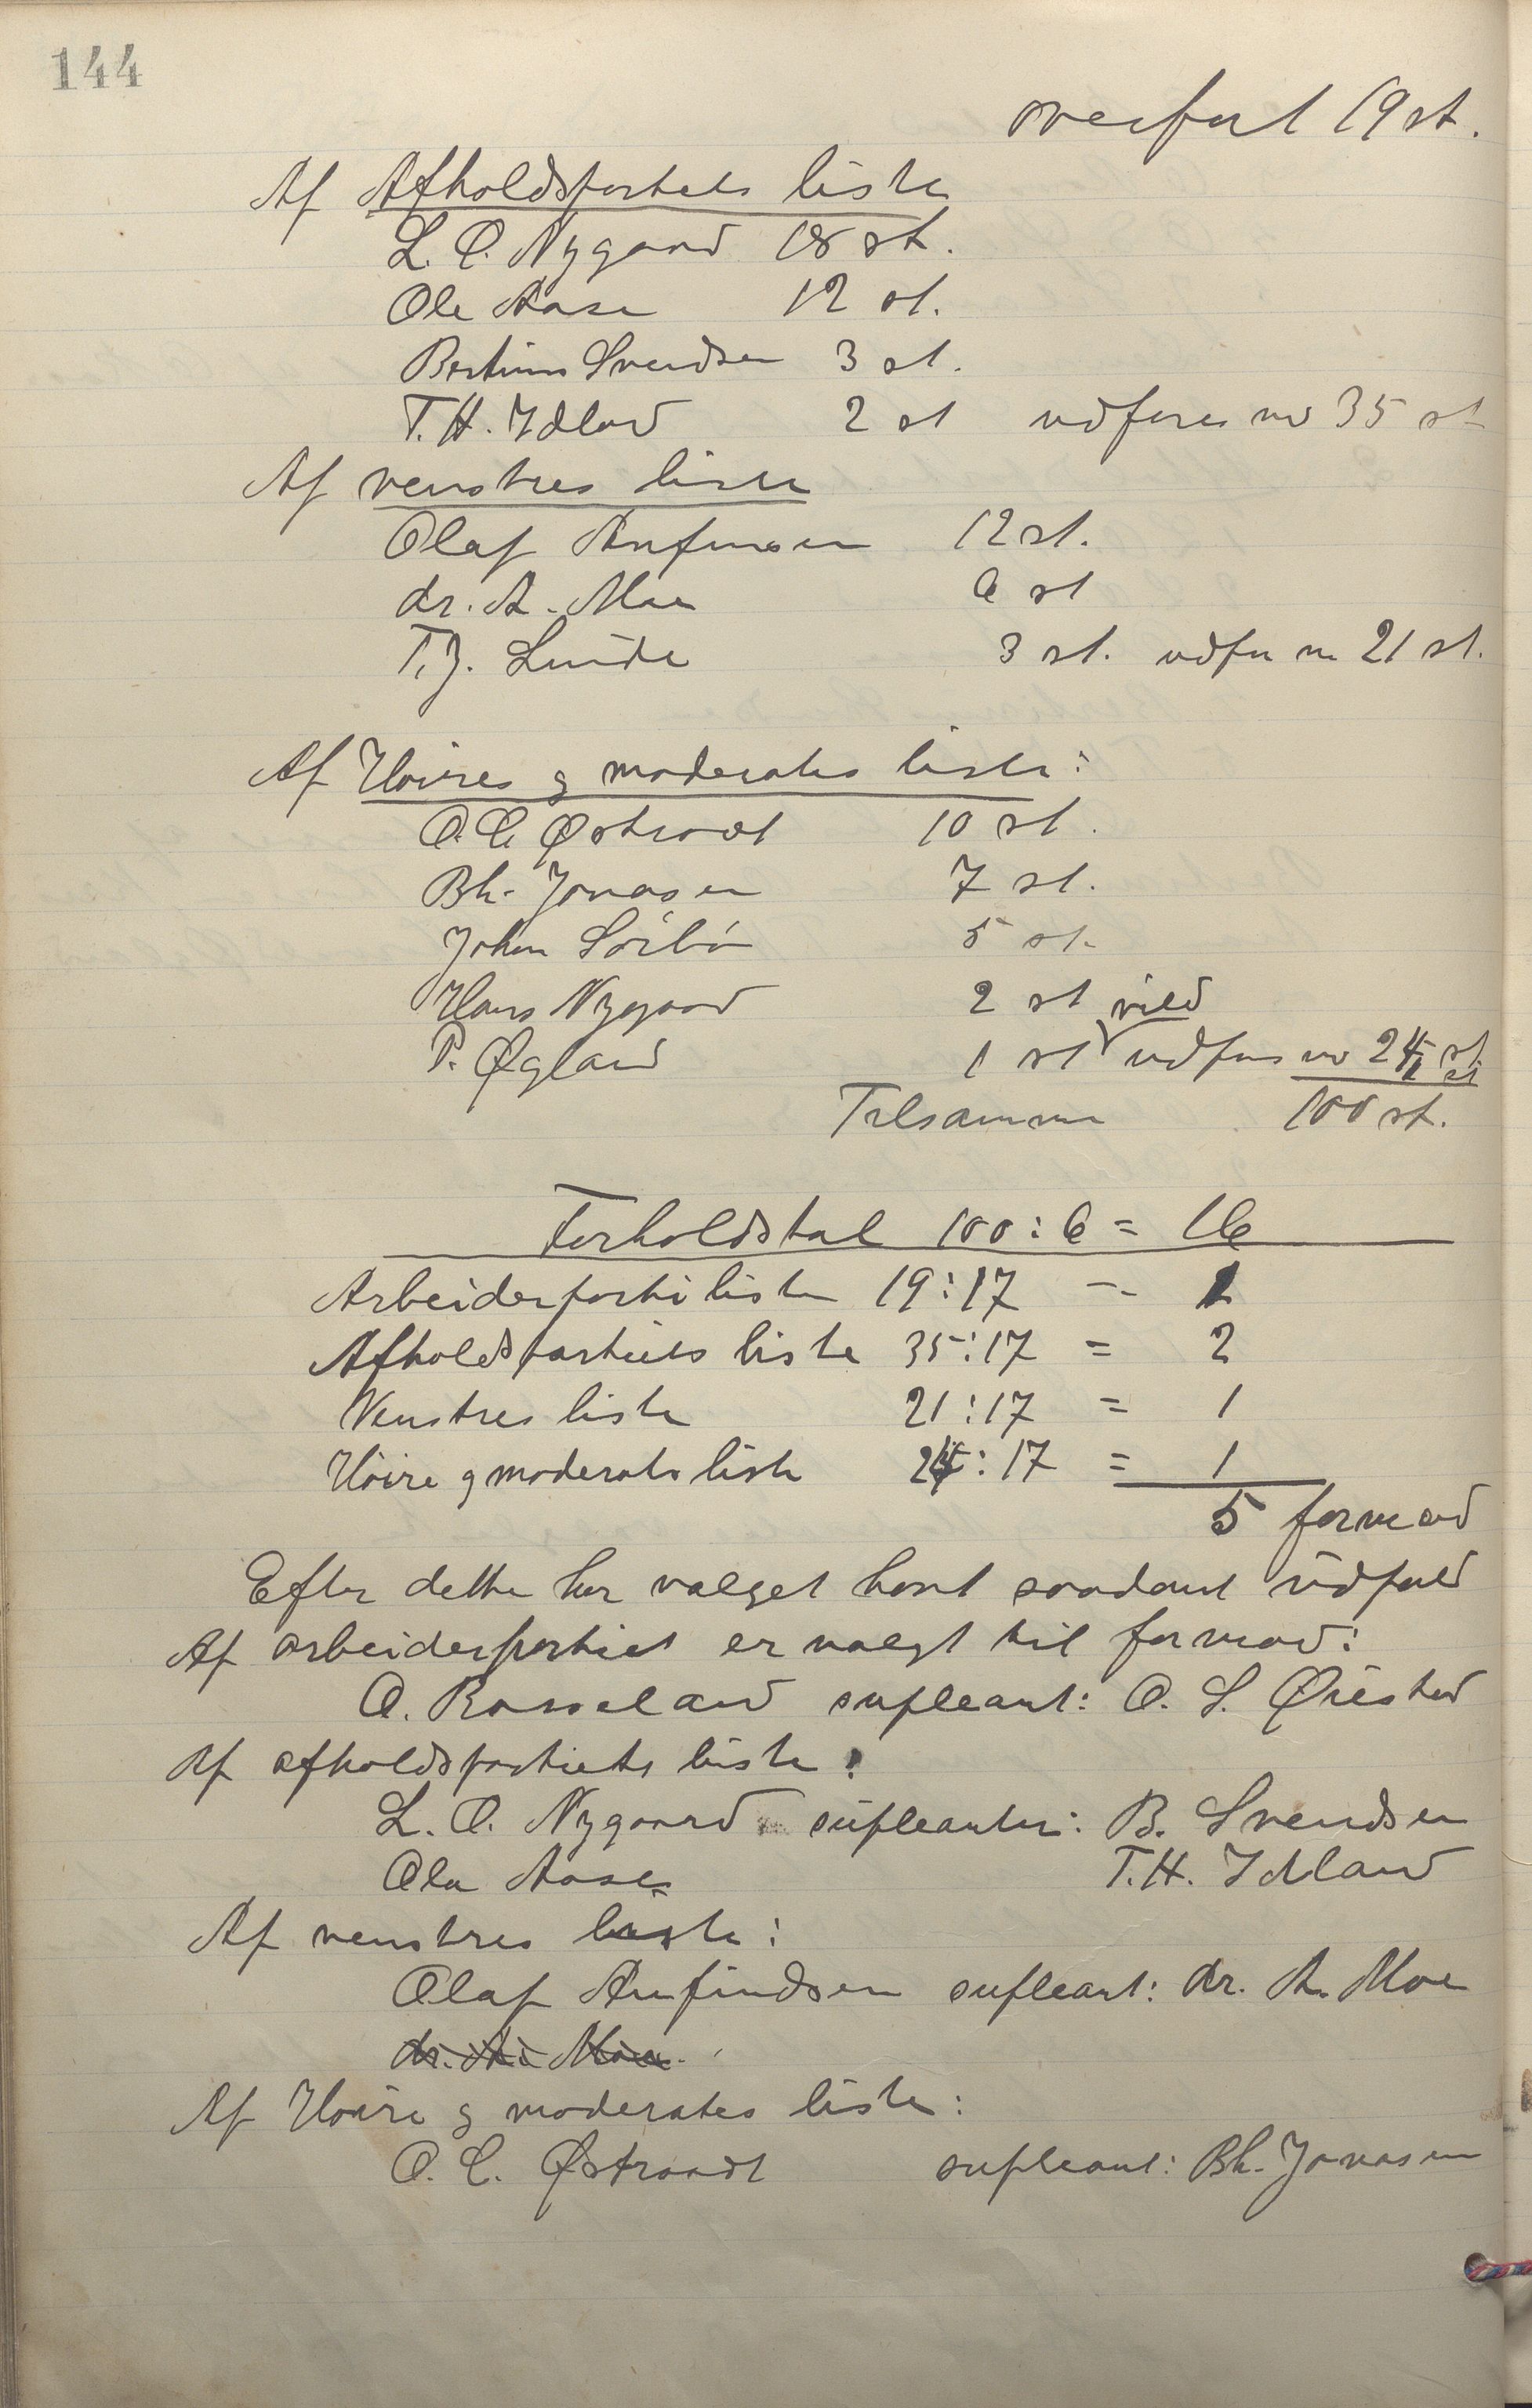 144
overført 19 st.
Af Afholdspartiets liste
L. O. Nygaard 18 st.
Ole Aase 12 st.
Bertinus Svendsen 3 st.
T. H. Idland 2 st udføres med 35 st
Af venstres liste
Olaf Anfinsen 12 st.
dr. A. Moe 6 st
T. J. Lunde 3 st. udføres m 21 st.
Af Høires og moderates liste:
O. C. Østraadt 10 st.
Bh. Jonasen 7 st.
Johan Sørbø 5 st.
Hans Nygaard 2 st vild
P. Øgland 1 st udføres med 25 st
Tilsammen 100 st.
Forholdstal 100 : 6 = 16
Arbeiderparti liste 19 : 17 = 1
Afholdspartiets liste 35 : 17 = 2
Venstres liste 21 : 17 = 1
Høire og moderate liste 25 : 17 = 1
5 formænd
Efter dette har valget havt saadant udfald
Af arbeiderpartiet er valgt til formænd:
O. Rosseland supleant: O. S. Øiestad
Af afholdspartiets liste:
L. O. Nygaard supleanter: B. Svendsen
Ole Aase T. H. Idland
Af venstres liste:
Olaf Anfindsen supleant: dr. A. Moe
dr. A. Moe.
Af Høire og moderates liste:
O. C. Østraadt supleant: Bh. Jonasen